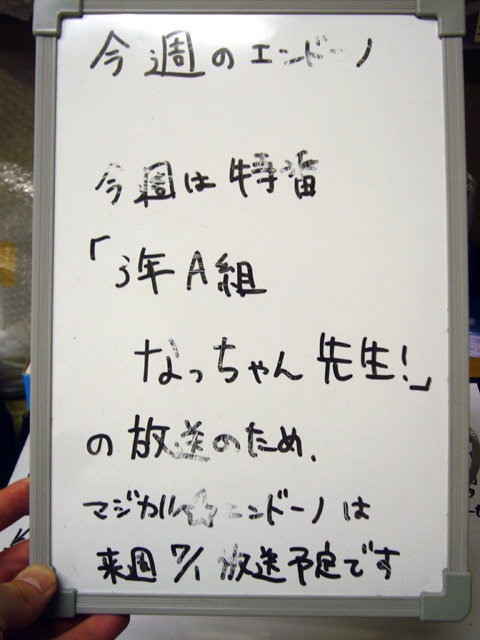 今週のエンドーノ
今週は特番
「3年A組
なっちゃん先生!」
の放送のため、
マジカル☆エンドーノは
来週7/1放送予定です